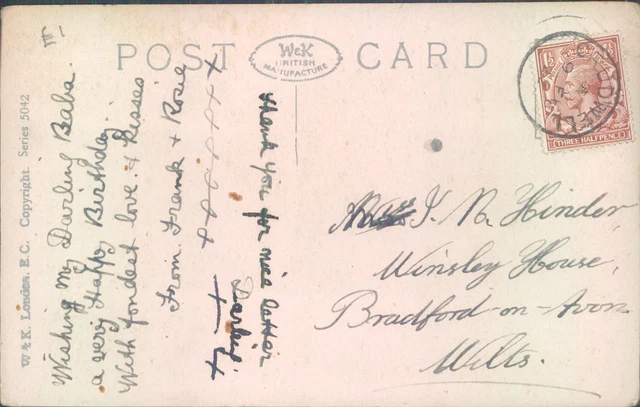 POST CARD
W&K
BRITISH
MANUFACTURE
W & K. London, E.C. Copyright. Series 5042
Wishing my Darling Baba
a very Happy Birthday.
With fondest love & Kisses
From Frank & Rosie
x x x x x x x x
thank you for nice letter
Darling.
J. N. Hinder,
Winsley House,
Bradford-on-Avon
Wilts.
THREE HALFPENCE